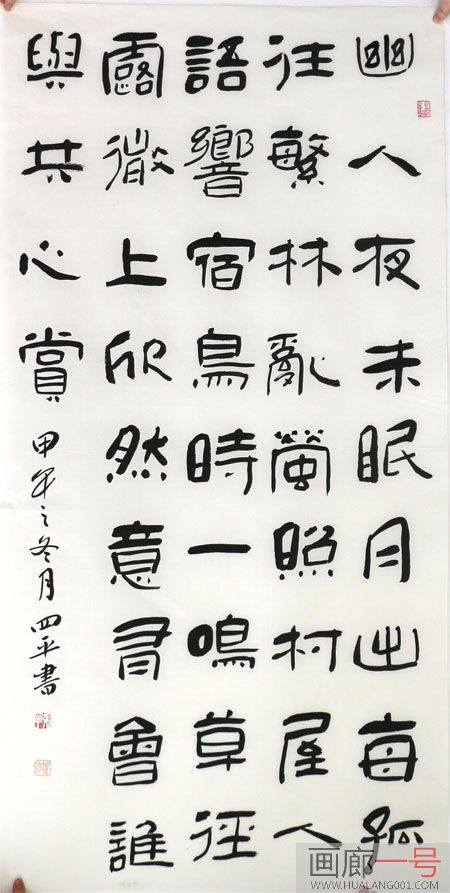 幽人夜未眠月出每孤
往繁林亂螢照村屋人
語響宿鳥時一鳴草徑
露微上欣然意有會誰
與共心賞
甲午之冬月四平書
画廊一号
WWW.HUALANG001.COM